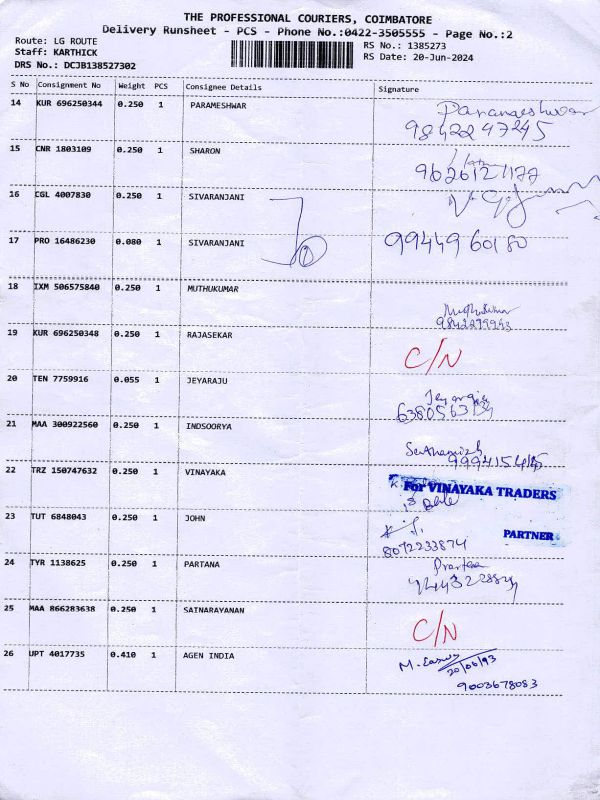 THE PROFESSIONAL COURIERS, COIMBATORE
Delivery Runsheet - PCS - Phone No.:0422-3505555 - Page No.:2
Route: LG ROUTE
Staff: KARTHICK
DRS No.: DCJB138527302
RS No.: 1385273
RS Date: 20-Jun-2024
S No Consignment No Weight PCS Consignee Details Signature
14 KUR 696250344 0.250 1 PARAMESHWAR Parameshwar
9842247245
15 CNR 1803109 0.250 1 SHARON
9626121177
16 CGL 4007830 0.250 1 SIVARANJANI
17 PRO 16486230 0.080 1 SIVARANJANI 9944960180
18 IXM 506575840 0.250 1 MUTHUKUMAR Muthukumar
9842279943
19 KUR 696250348 0.250 1 RAJASEKAR C/N
20 TEN 7759916 0.055 1 JEYARAJU
21 MAA 300922560 0.250 1 INDSOORYA
22 TRZ 150747632 0.250 1 VINAYAKA For VINAYAKA TRADERS
PARTNER
23 TUT 6848043 0.250 1 JOHN
8072233874
24 TYR 1138625 0.250 1 PARTANA
25 MAA 866283638 0.250 1 SAINARAYANAN C/N
26 UPT 4017735 0.410 1 AGEN INDIA
20/06/93
9003678083